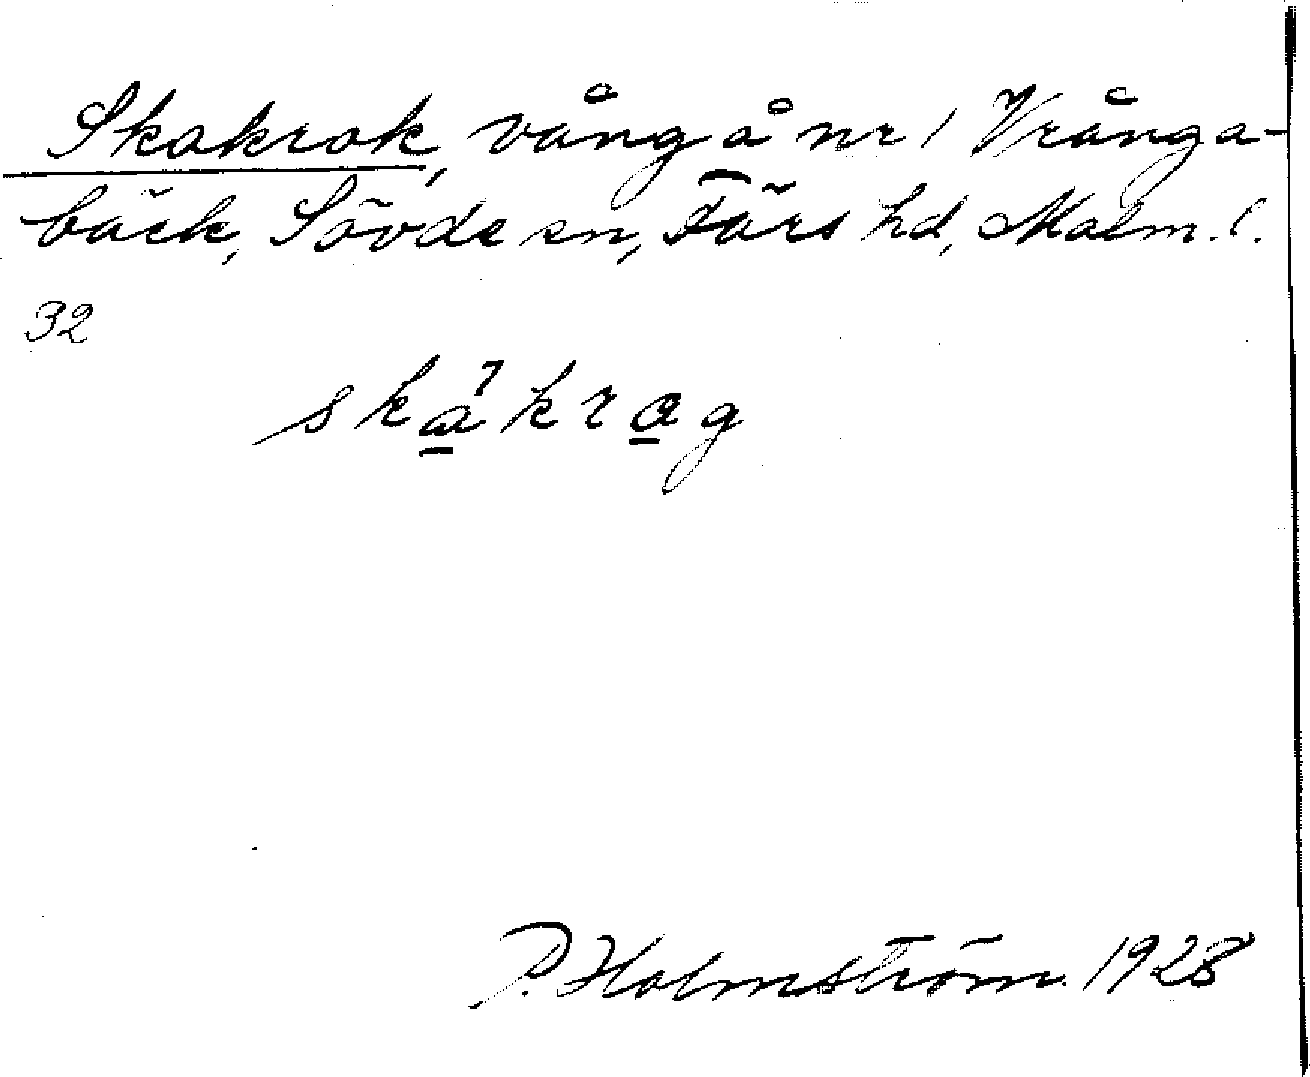 Skakrok, vång å nr 1 Vrånga-
bäck, Sövde sn, Färs hd, Malm. l.
32
P. Holmström 1928